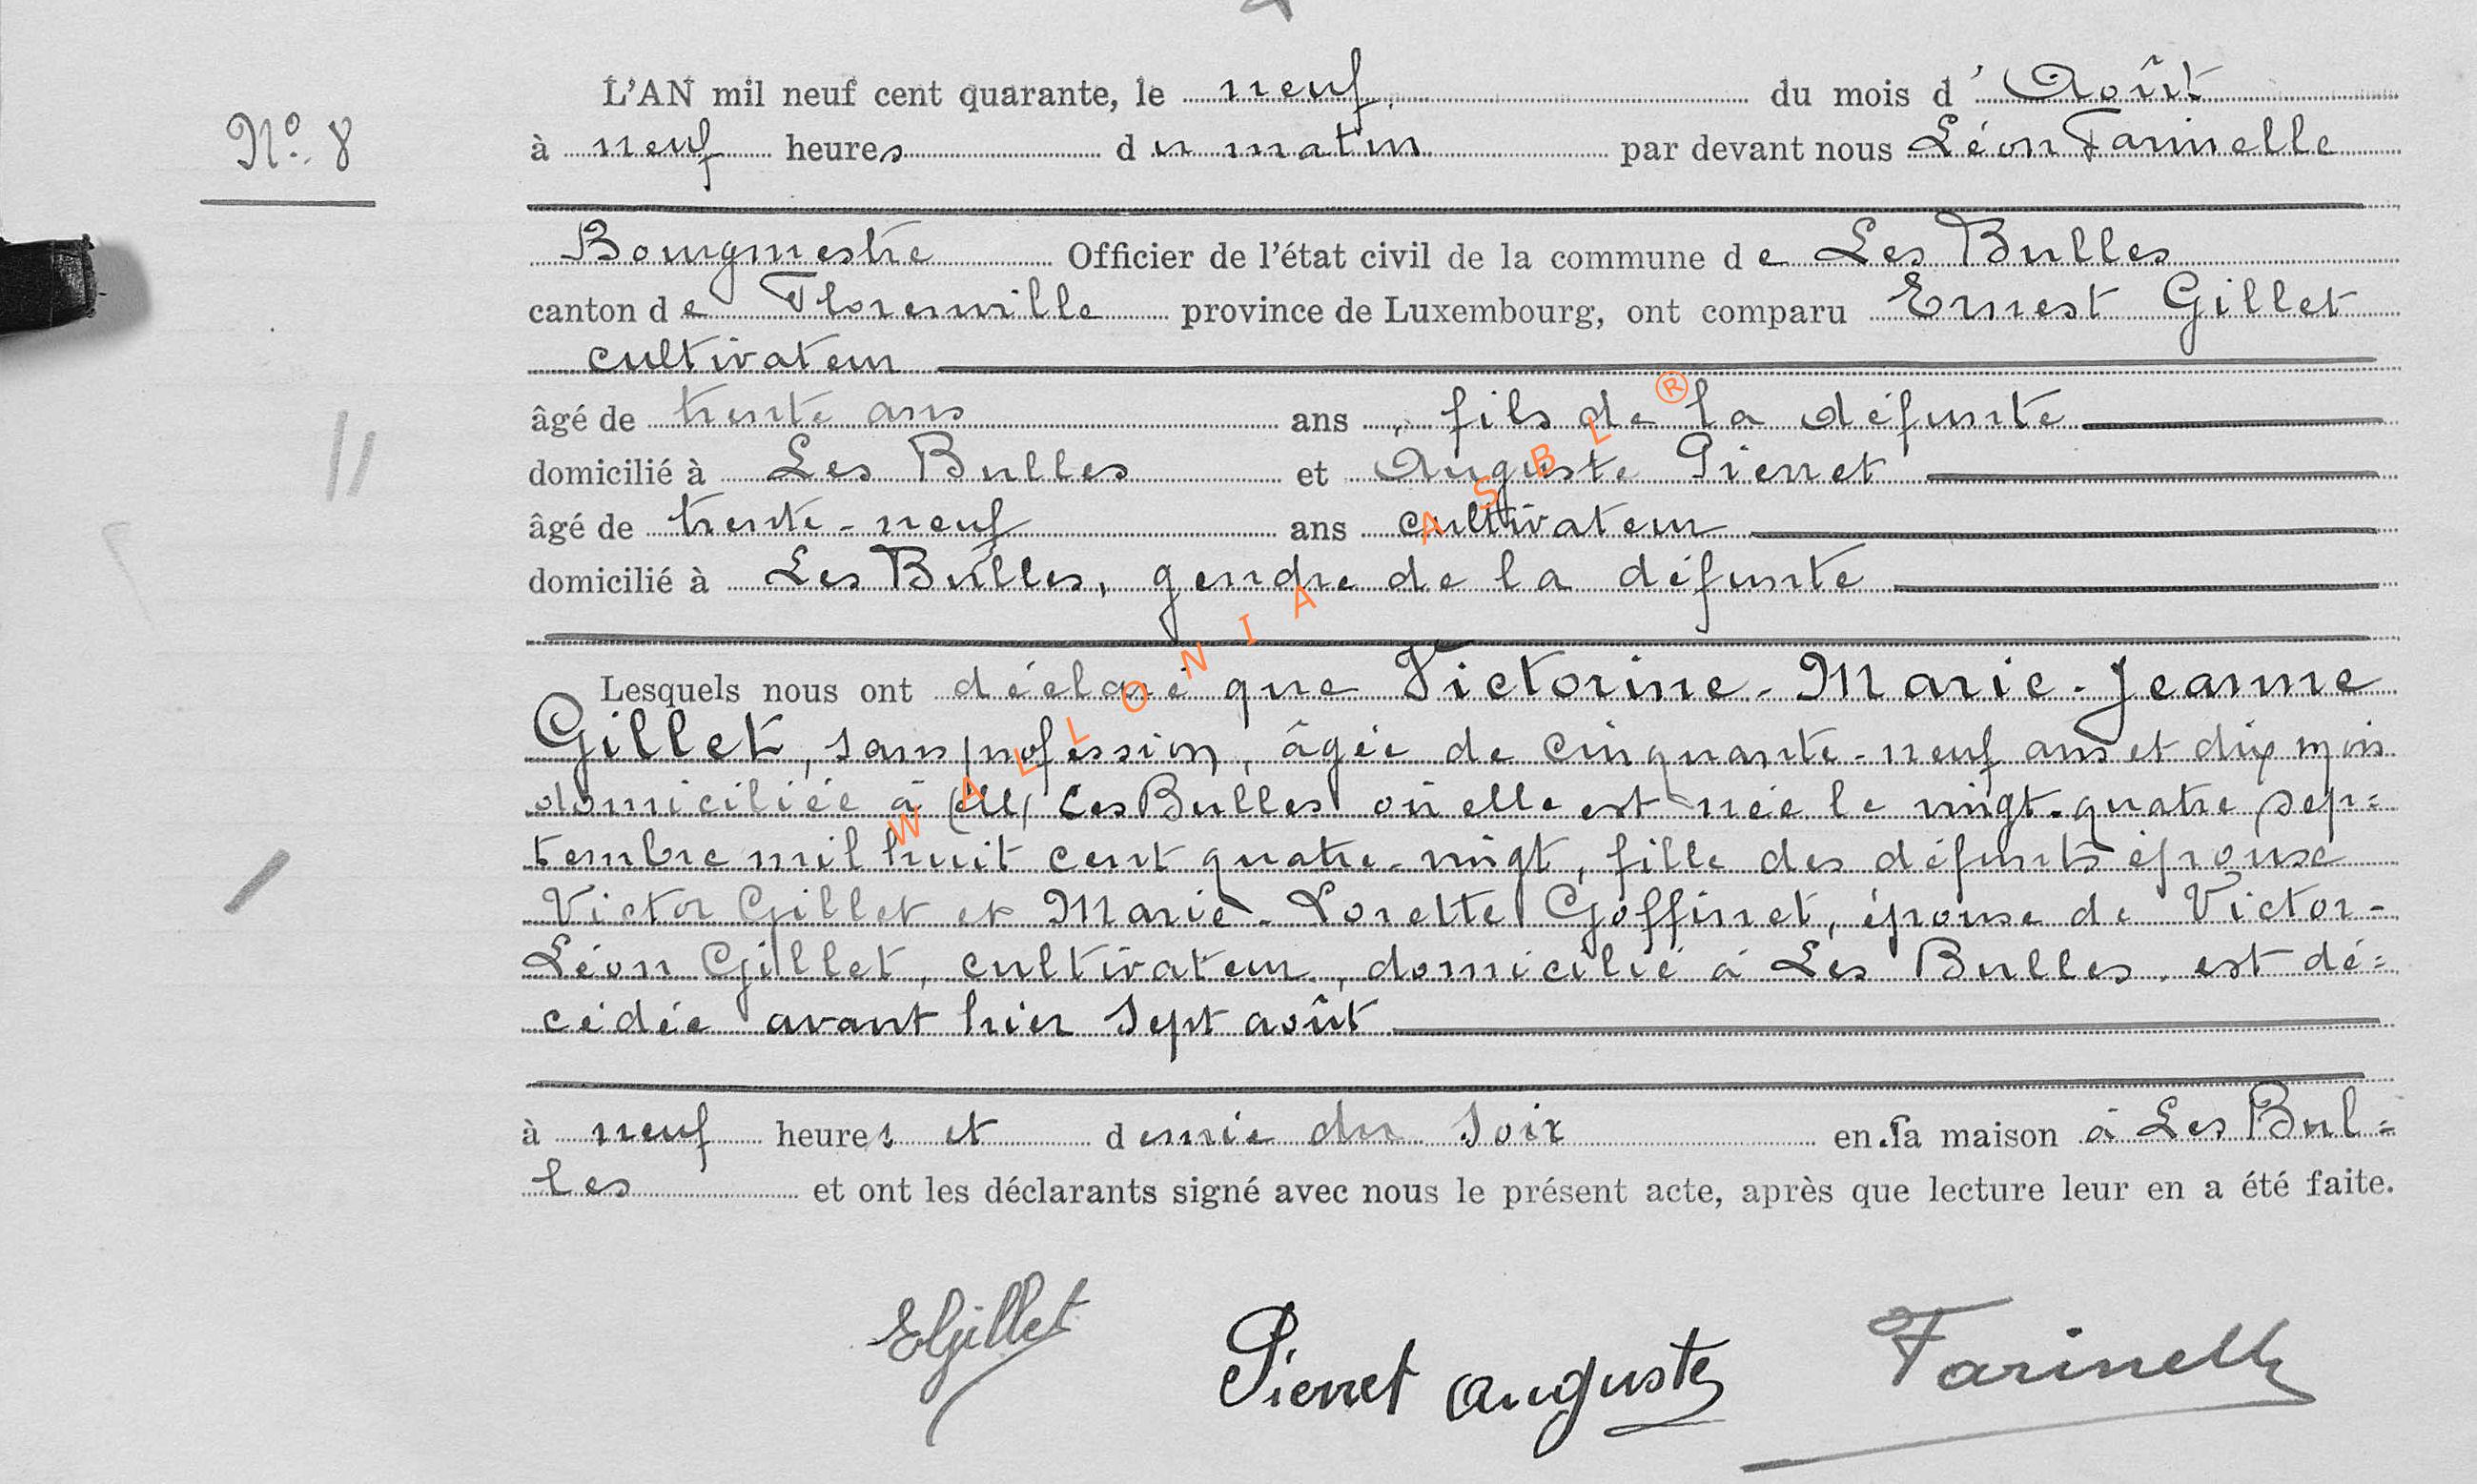 L'AN mil neuf cent quarante, le neuf. du mois d'Août
N° 8
à neuf heures du matin par devant nous Léon Farinelle
Bourgmestre Officier de l'état civil de la commune de Les Bulles
canton de Florenville province de Luxembourg, ont comparu Ernest Gillet
cultivateur
âgé de trente ans ans, fils de la défunte
domicilié à Les Bulles et Auguste Pierret
âgé de trente-neuf ans cultivateur
domicilié à Les Bulles, gendre de la défunte
Lesquels nous ont déclaré que Victorine-Marie-Jeanne
Gillet, sans profession, âgée de cinquante-neuf ans et dix mois
domiciliée à Les Bulles où elle est née le vingt-quatre sep=
tembre mil huit cent quatre-vingt, fille des défunts épouse
Victor Gillet et Marie-Lorette Goffinet, épouse de Victor-
Léon Gillet, cultivateur, domicilié à Les Bulles. est dé=
cédée avant hier sept août
à neuf heures et demie du soir en sa maison à Les Bul=
les et ont les déclarants signé avec nous le présent acte, après que lecture leur en a été faite.
EGillet
Pierret Auguste
Farinelle
WALLONIA ASBL ®